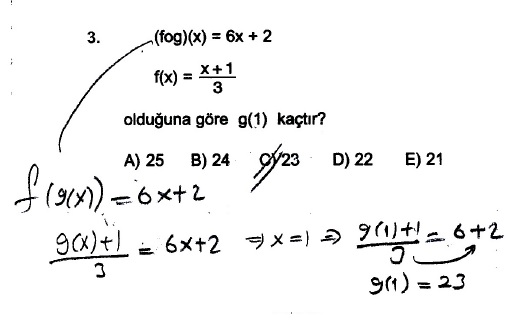 3. (fog)(x) = 6x + 2
f(x) = x+1/3
olduğuna göre g(1) kaçtır?
A) 25 B) 24 C) 23 D) 22 E) 21
f(g(x)) = 6x+2
g(x)+1/3 = 6x+2 ⇒ x=1 ⇒ g(1)+1/3 = 6+2
g(1) = 23